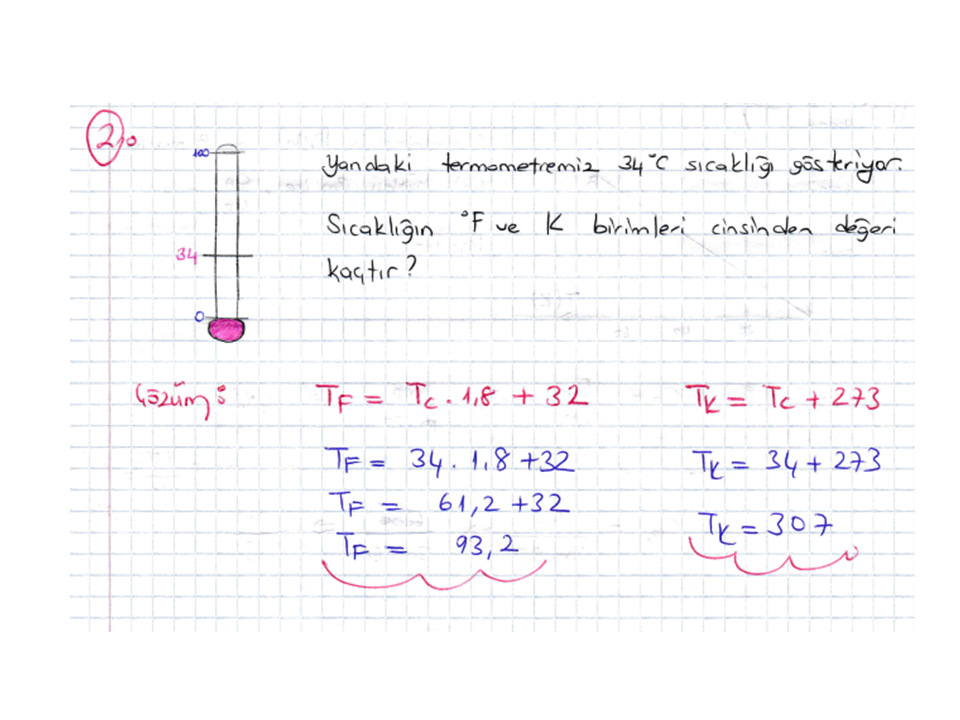 2.
100
34
0
Yandaki termometremiz 34°C sıcaklığı gösteriyor.
Sıcaklığın °F ve K birimleri cinsinden değeri
kaçtır?
Çözüm:
TF = Tc . 1,8 + 32
TF = 34 . 1,8 + 32
TF = 61,2 + 32
TF = 93,2
TK = Tc + 273
TK = 34 + 273
TK = 307